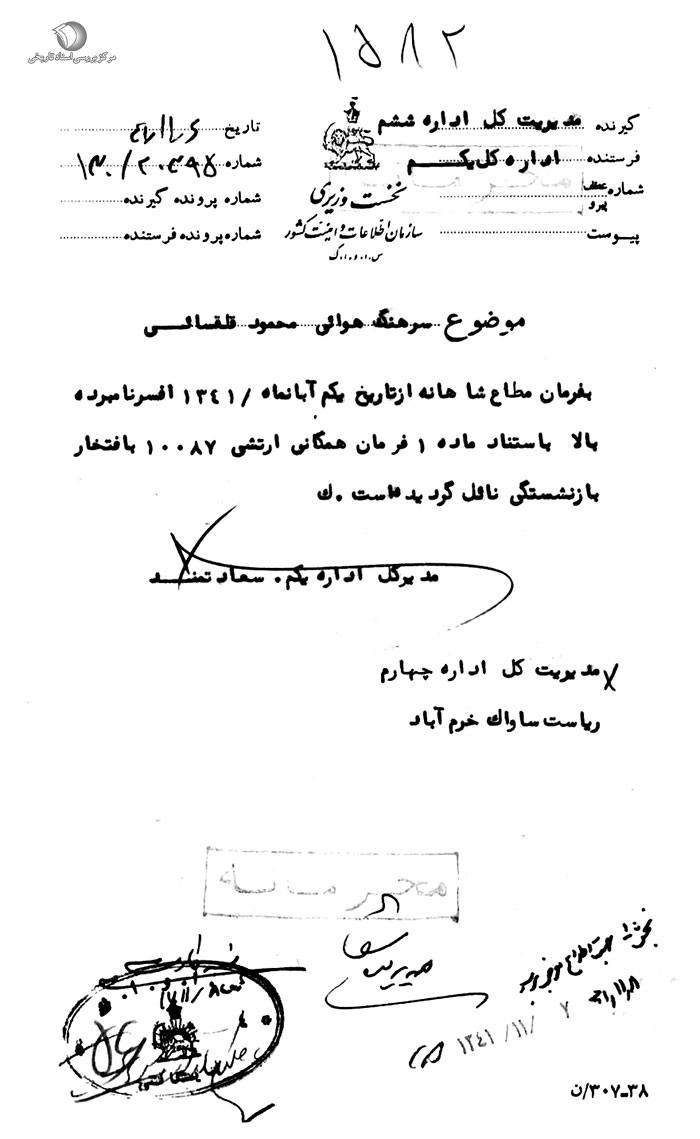 مرکز بررسی اسناد تاریخی
۱۵۸۲
گیرنده مدیریت کل اداره ششم
فرستنده اداره کل یکم
شماره عطف پیرو
پیوست
نخست وزیری
سازمان اطلاعات و امنیت کشور
س.ا.و.ا.ک
تاریخ
شماره
شماره پرونده گیرنده
شماره پرونده فرستنده
محرمانه
موضوع سرهنگ هوائی محمود قلقسائی
بفرمان مطاع شاهانه از تاریخ یکم آبانماه /۱۳٤۱ افسر نامبرده
بالا باستناد ماده ۱ فرمان همگانی ارتشی ۱۰۰۸۷ بافتخار
بازنشستگی نائل گردیده‌است .ک
مدیرکل اداره یکم . سعادتمند
مدیریت کل اداره چهارم
ریاست ساواک خرم آباد
محرمانه
۷ /۱۱/ ۱۳٤۱
۳۸-۳۰۷/ن